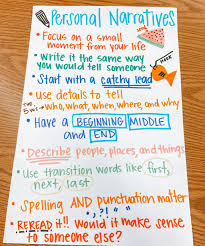 Personal Narratives
• Focus on a small
moment from your life
• Write it the same way
you would tell someone
HOOK
• Start with a catchy lead
• Use details to tell
The 5 W's → who, what, when, where and why
• Have a BEGINNING MIDDLE
and END
• Describe people, places, and things
• Use transition words like first,
next, last
• Spelling AND punctuation matter
. , ? ! " "
• REREAD it!! Would it make sense
to someone else?